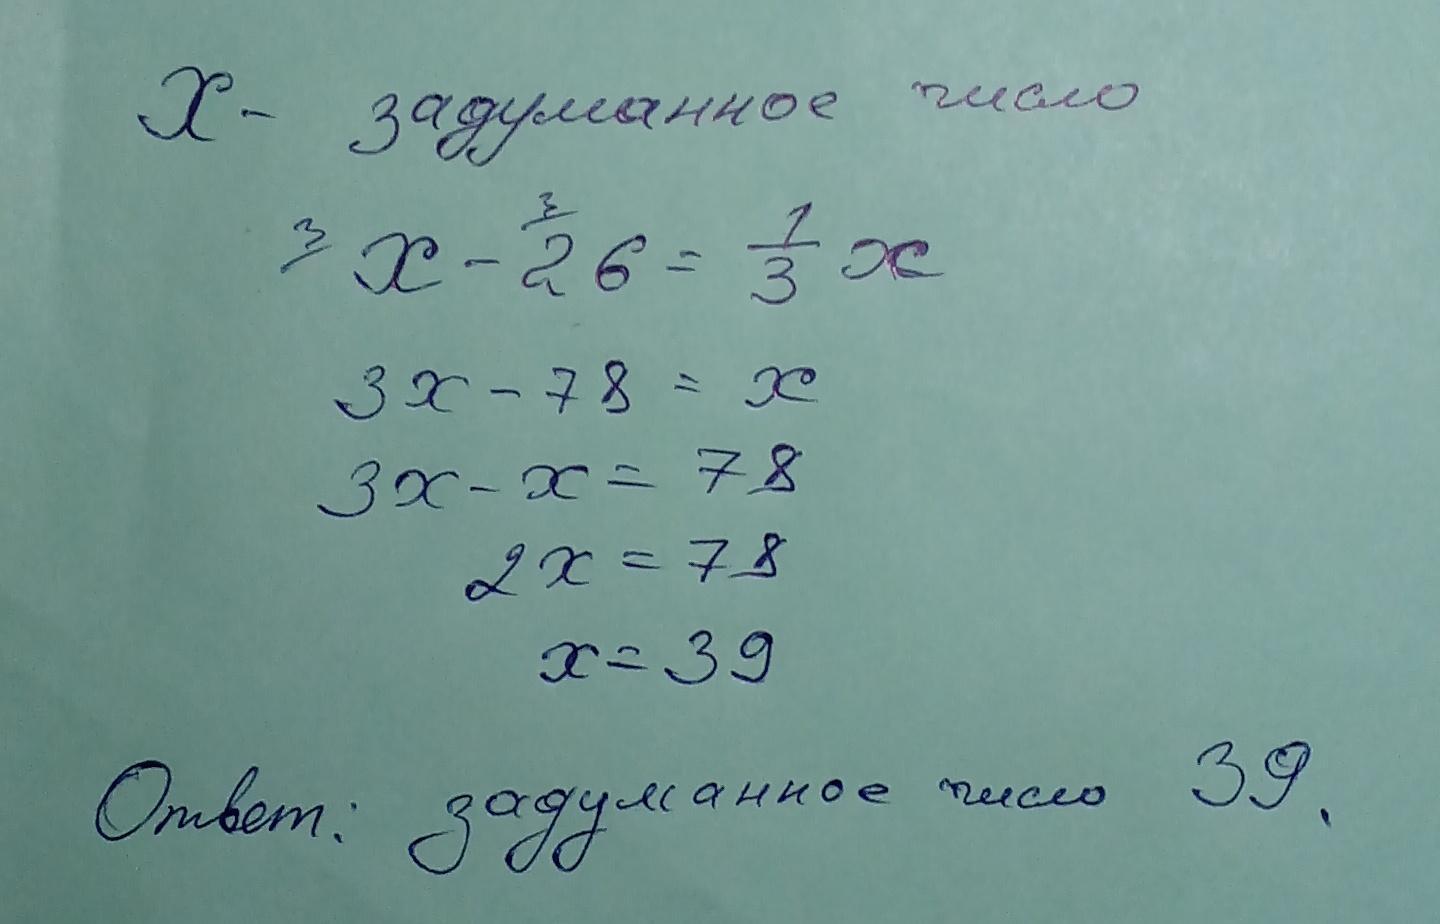 X - задуманное число
³⁄ x - ³⁄ 26 = 1/3 x
3x - 78 = x
3x - x = 78
2x = 78
x = 39
Ответ: задуманное число 39.